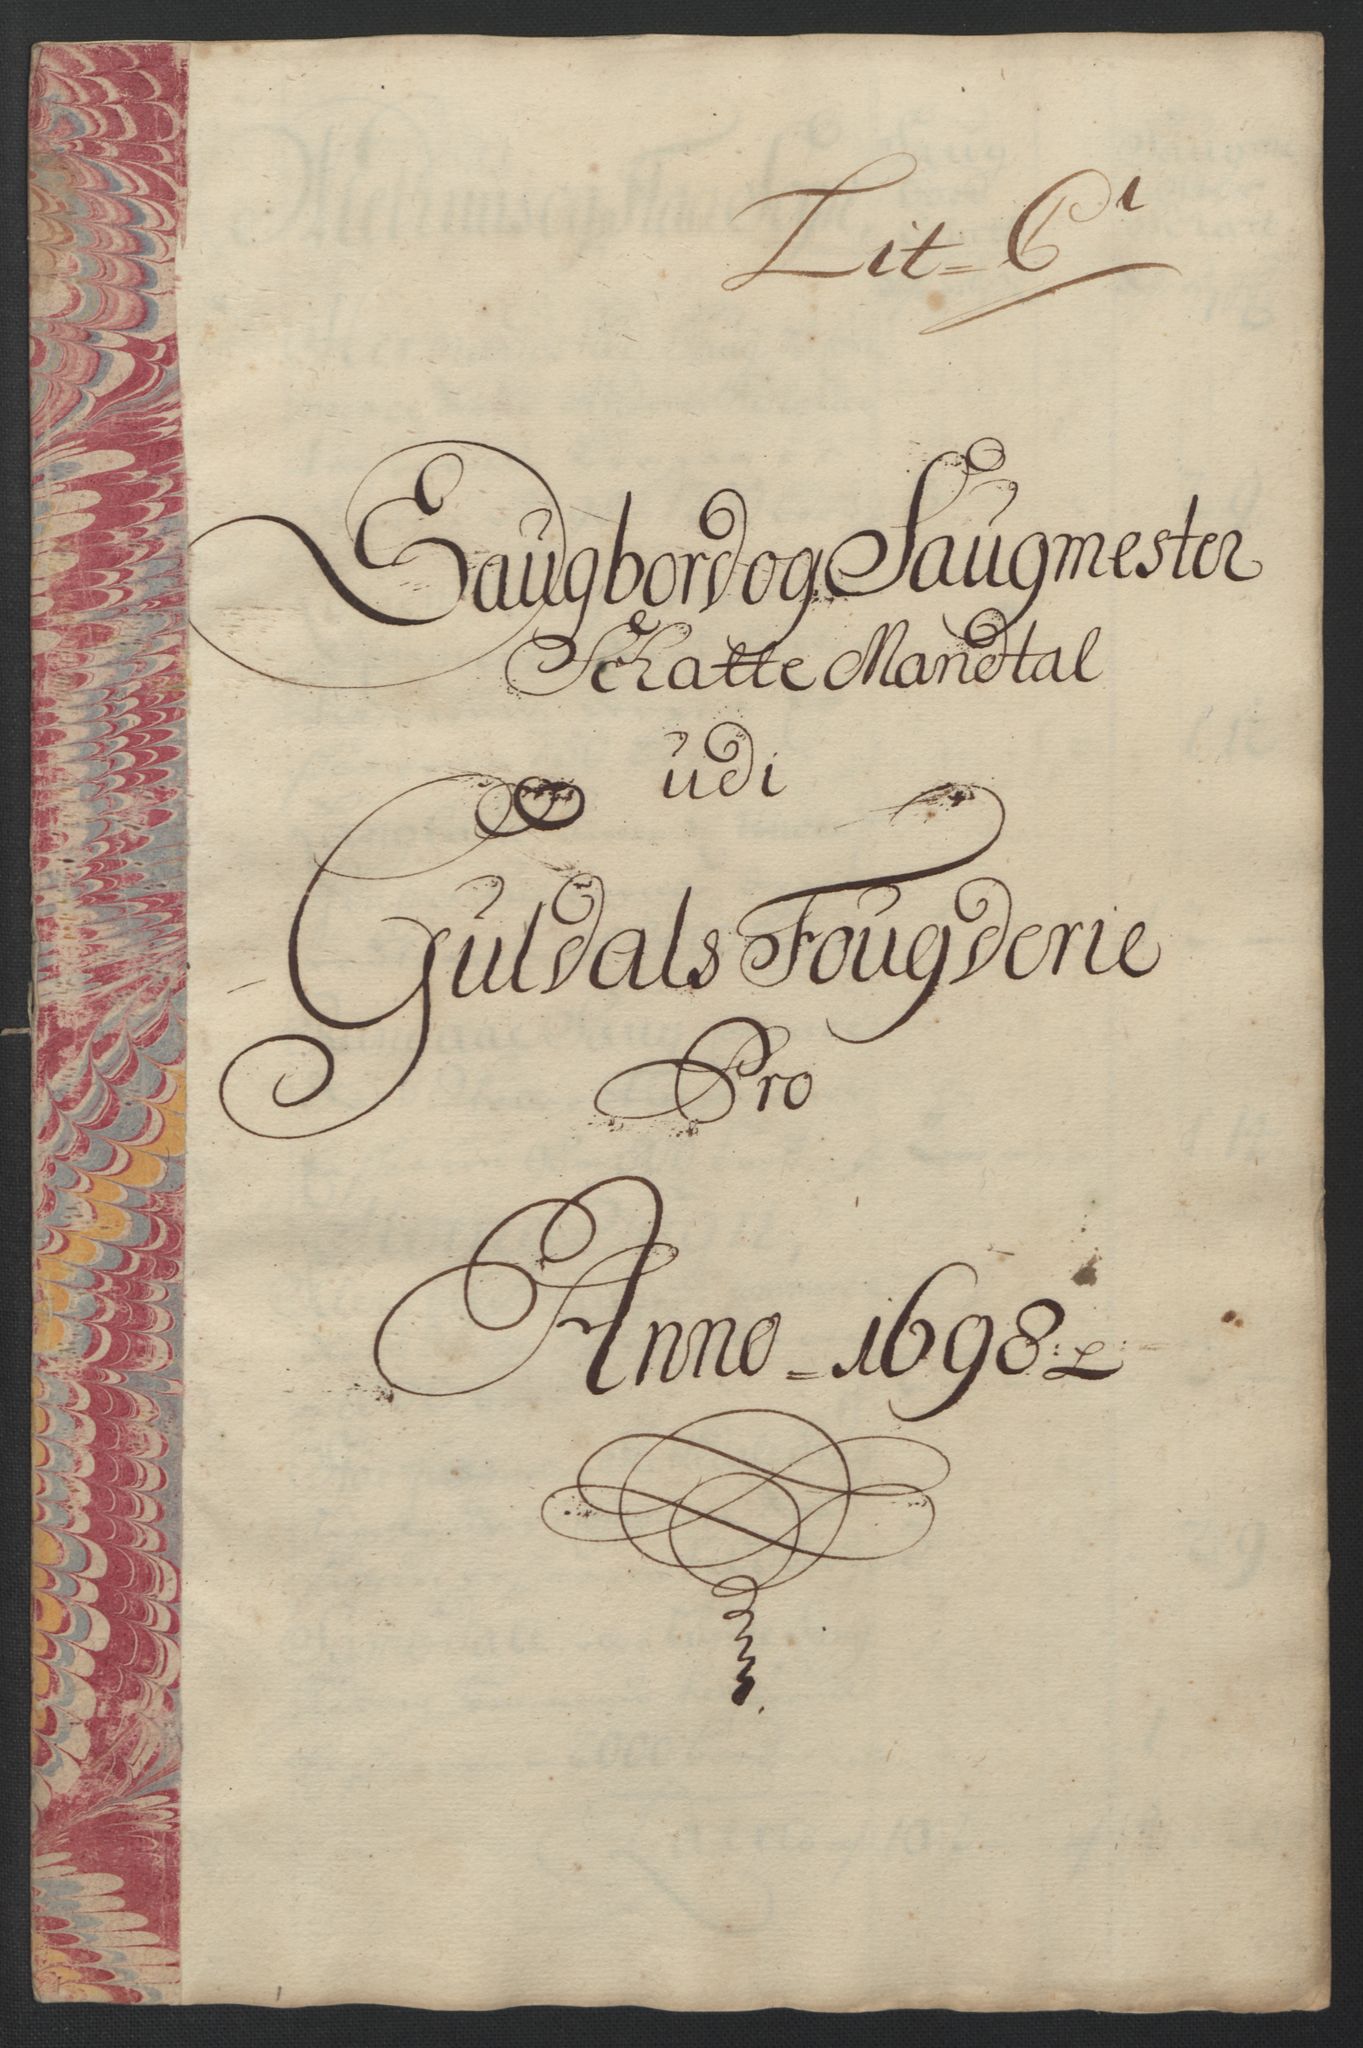 Lit= C¹
Saugbord og Saugmester
Schatte Mandtal
udi
Guldals Fougderie
Pro
Anno = 1698